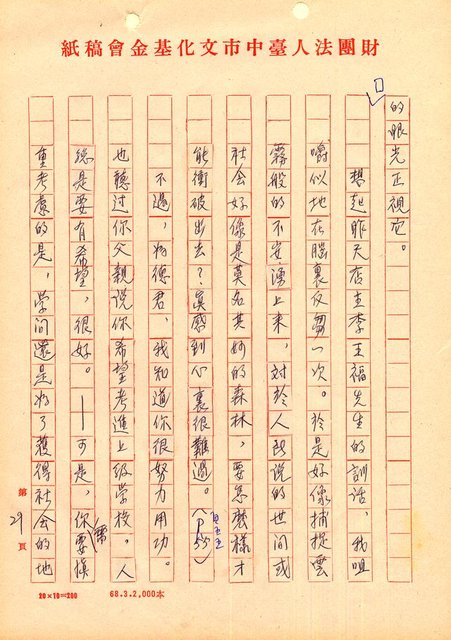 財團法人臺中市文化基金會稿紙
的眼光正視它。
想起昨天店主李王福先生的訓話,我咀
嚼似地在腦裏反芻一次。於是好像捕捉雲
霧般的不安湧上來,對於人所說的世間或
社會好像是莫名其妙的森林,要怎麼樣才
能衝破出去?真感到心裏很難過。(P55)
不過,德君,我知道你很努力用功。
也聽過你父親說你希望考進上級學校。人
總是要有希望,很好。——可是,你需要慎
重考慮的是,學問還是為了獲得社會的地
第29頁
20×10=200
68.3.2,000本